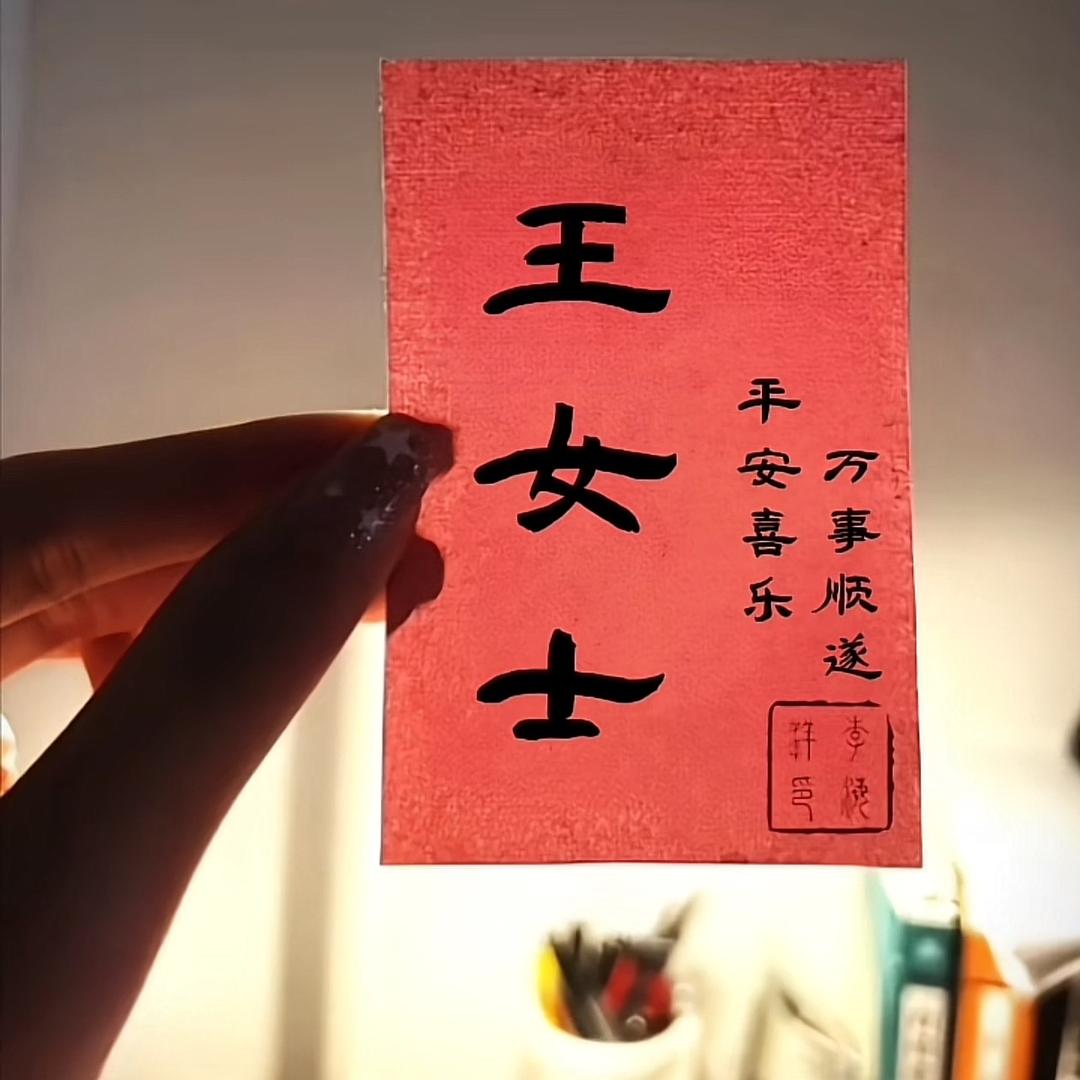 王女士
万事顺遂
平安喜乐